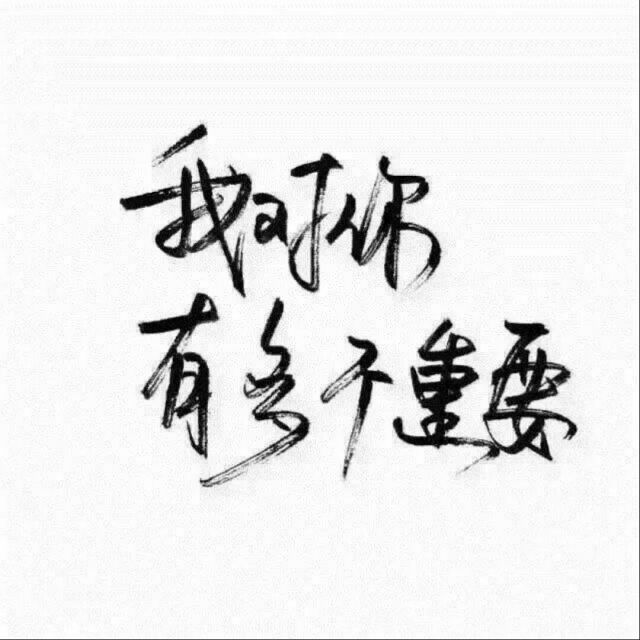 我对你
有多不重要